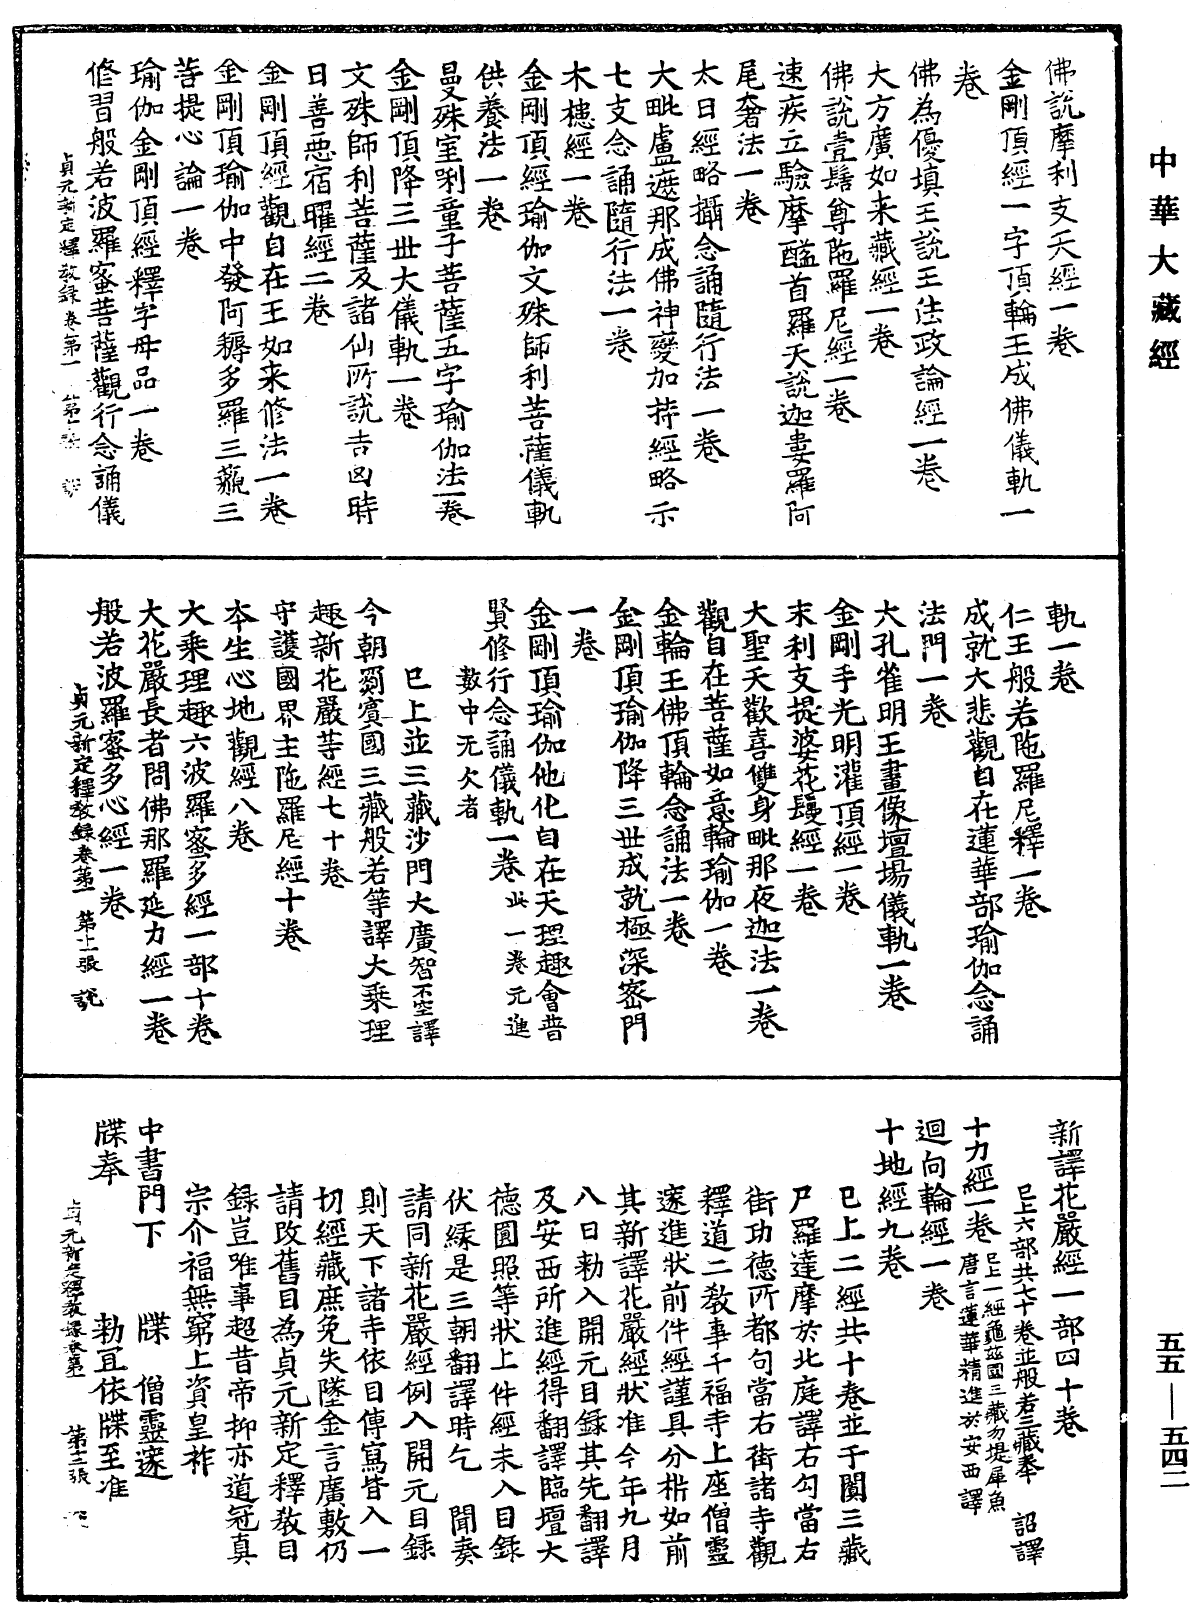 中華大藏經
五五—五四二
佛說摩利支天經一卷
金剛頂經一字頂輪王成佛儀軌一
卷
佛為優填王說王法政論經一卷
大方廣如来藏經一卷
佛說壹髻尊陁羅尼經一卷
速疾立驗摩醯首羅天說迦婁羅阿
尾奢法一卷
大日經略攝念誦隨行法一卷
大毗盧遮那成佛神變加持經略示
七支念誦隨行法一卷
木槵經一卷
金剛頂經瑜伽文殊師利菩薩儀軌
供養法一卷
曼殊室唎童子菩薩五字瑜伽法一卷
金剛頂降三世大儀軌一卷
文殊師利菩薩及諸仙所說吉凶時
日善惡宿曜經二卷
金剛頂經觀自在王如来修法一卷
金剛頂瑜伽中發阿耨多羅三藐三
菩提心論一卷
瑜伽金剛頂經釋字母品一卷
修習般若波羅蜜菩薩觀行念誦儀
貞元新定釋教錄卷第一
軌一卷
仁王般若陁羅尼釋一卷
成就大悲觀自在蓮華部瑜伽念誦
法門一卷
大孔雀明王畫像壇場儀軌一卷
金剛手光明灌頂經一卷
末利支提婆花鬘經一卷
大聖天歡喜雙身毗那夜迦法一卷
觀自在菩薩如意輪瑜伽一卷
金輪王佛頂輪念誦法一卷
金剛頂瑜伽降三世成就極深密門
一卷
金剛頂瑜伽他化自在天理趣會普
賢修行念誦儀軌一卷 此一卷元進
數中无欠者
已上並三藏沙門大廣智不空譯
今朝罽賓國三藏般若等譯大乘理
趣新花嚴等經七十卷
守護國界主陁羅尼經十卷
本生心地觀經八卷
大乘理趣六波羅蜜多經一部十卷
大花嚴長者問佛那羅延力經一卷
般若波羅蜜多心經一卷
貞元新定釋教錄卷第一 第十一張 說
新譯花嚴經一部四十卷
已上六部共七十卷並般若三藏奉 詔譯
十力經一卷 已上一經龜茲國三藏勿提犀魚
唐言蓮華精進於安西譯
迴向輪經一卷
十地經九卷
已上二經共十卷並于闐三藏
尸羅達摩於北庭譯右勾當右
街功德所都句當右街諸寺觀
釋道二教事千福寺上座僧靈
邃進狀前件經謹具分析如前
其新譯花嚴經狀准今年九月
八日勑入開元目錄其先翻譯
及安西所進經得翻譯臨壇大
德圓照等狀上件經未入目錄
伏緣是三朝翻譯時乞 聞奏
請同新花嚴經例入開元目錄
則天下諸寺依目傳寫皆入一
切經藏庶免失墜金言廣敷仍
請改舊目為貞元新定釋教目
錄豈唯事超昔帝抑亦道冠真
宗介福無窮上資皇祚
中書門下 牒 僧靈邃
牒奉 勑宜依牒至准
貞元新定釋教錄卷第一 第十二張